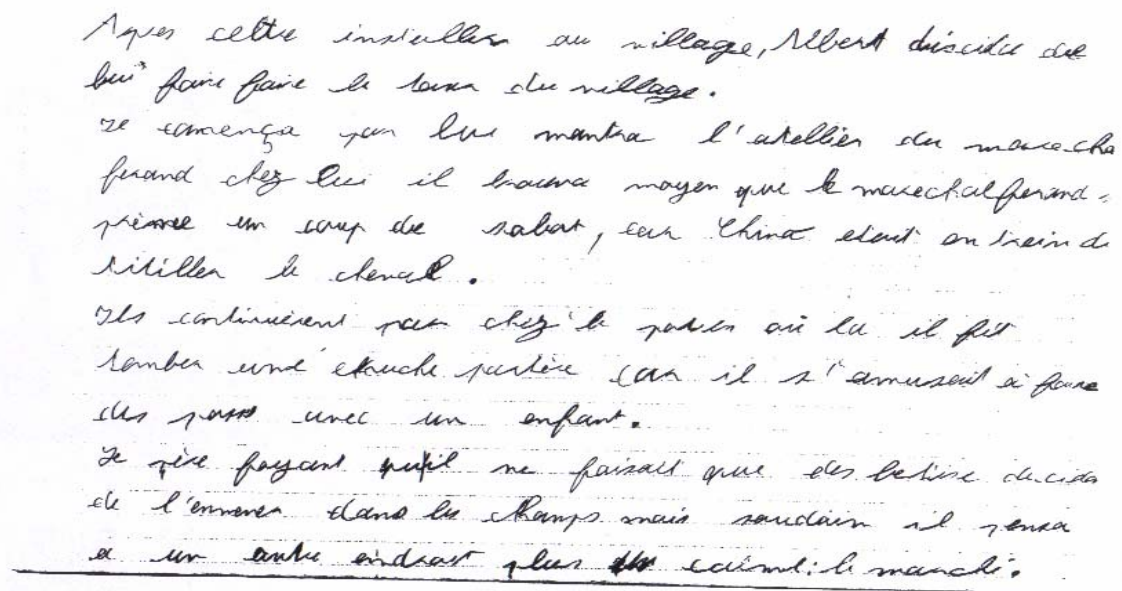 Apres cettre installer au village, Albert discida de
lui faire faire le tour du village.
Il comença par lui montra l'atellier du marecha
ferand chez lui il trouva moyen que le marechal ferand
prenne un coup de sabot, car China etait en train de
titiller le cheval.
Ils continuèrent par chez le potier où la il fit
tomber une cruche car il s'amusait à faire
des avec un enfant.
Le père qu'il ne faisait que des betise decida
de l'emmener dans les champs mais soudain il pensa
a un autre endroit plus calme: le marché.